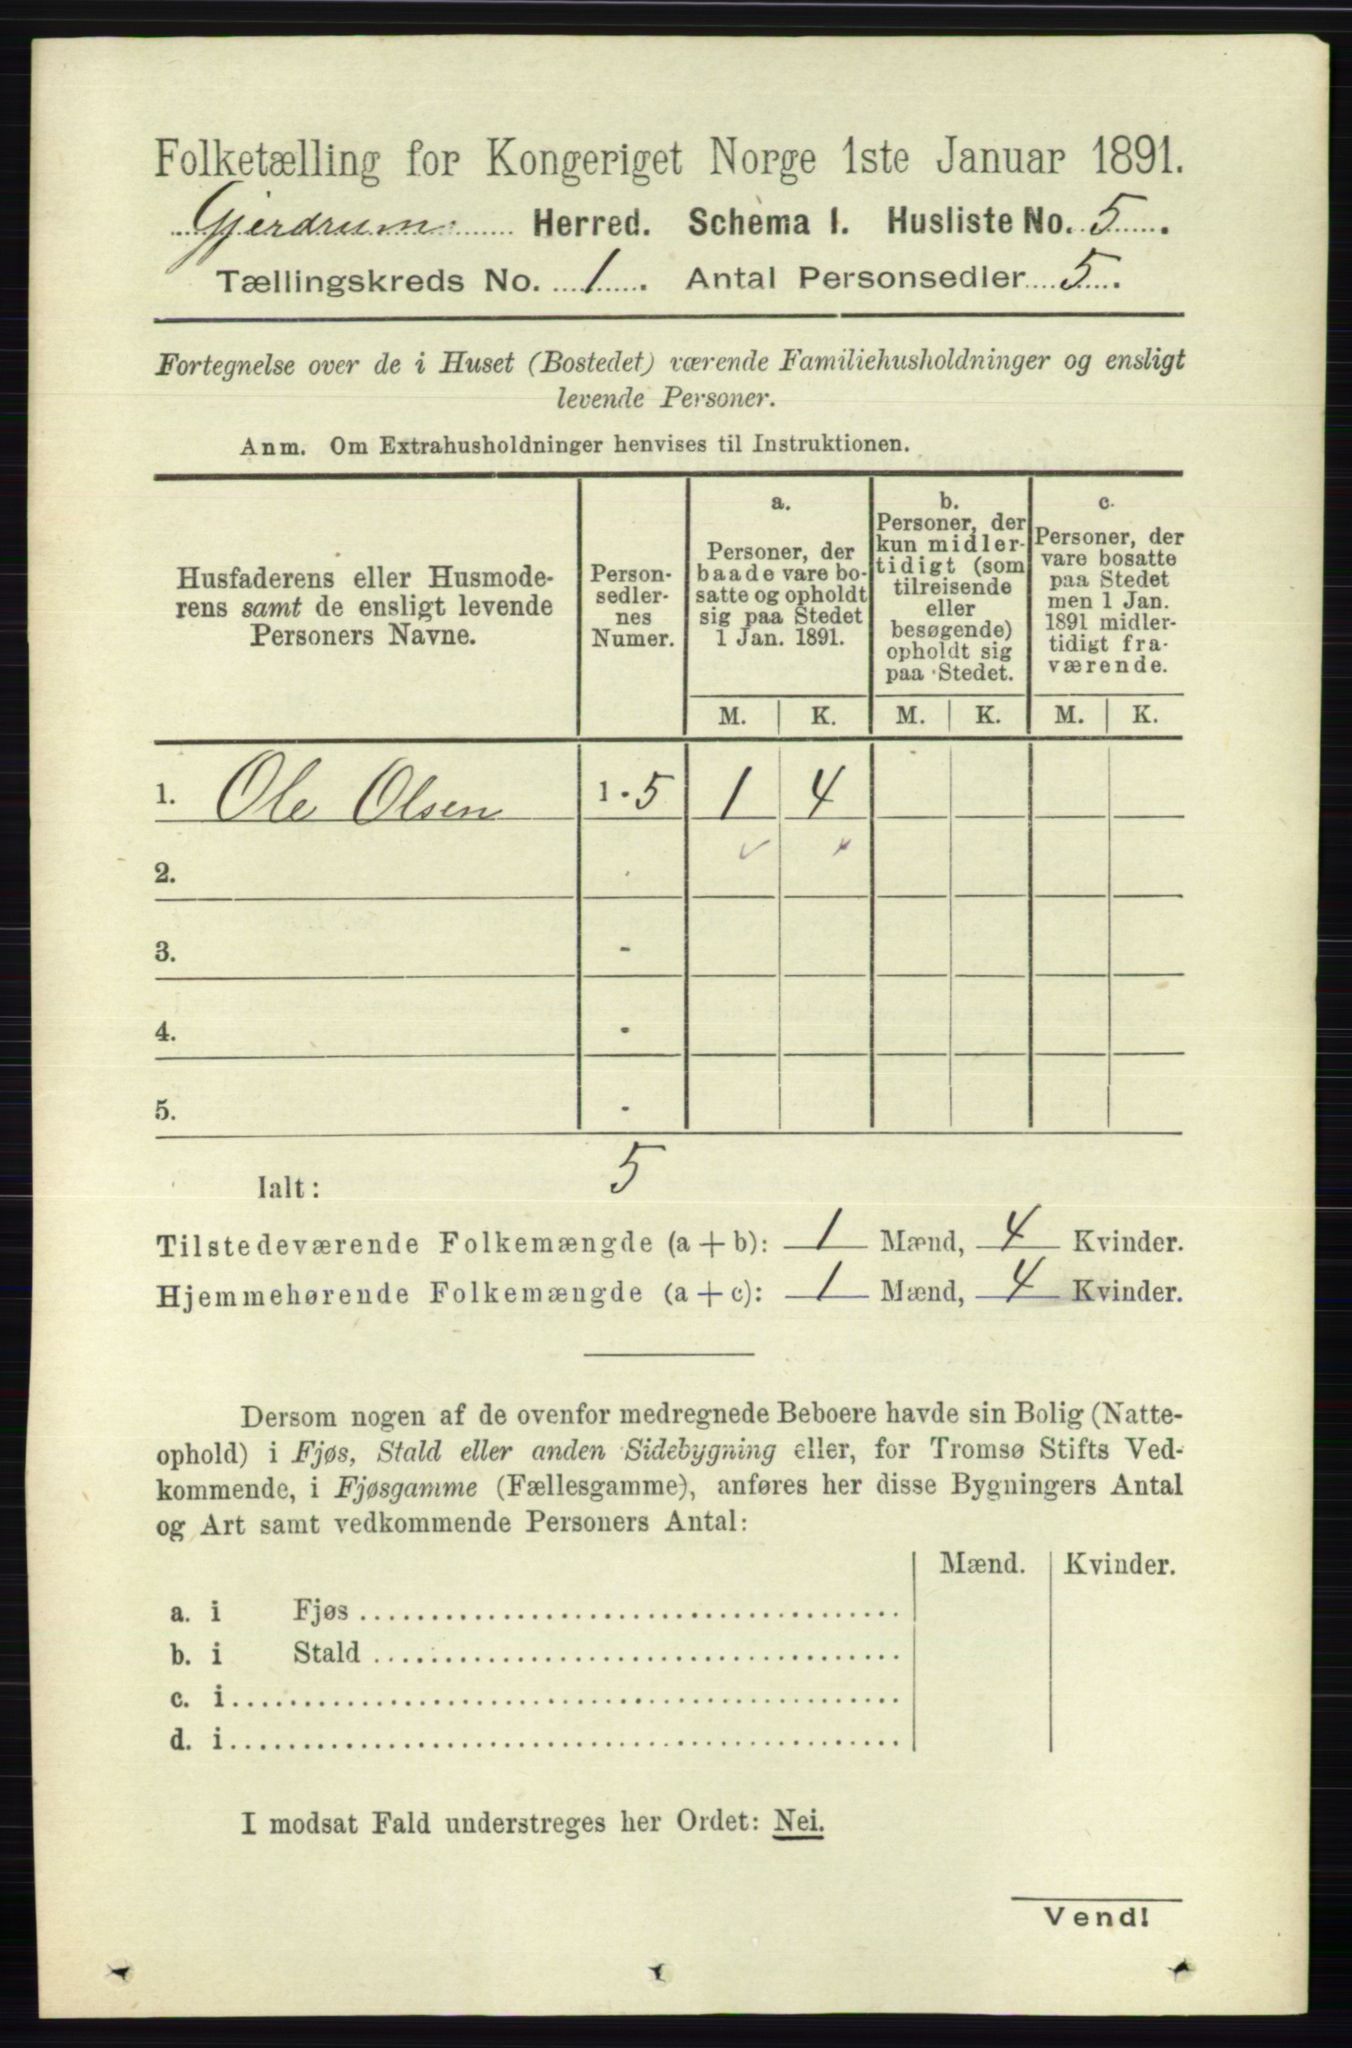 Folketælling for Kongeriget Norge 1ste Januar 1891.
Gjerdrum Herred. Schema 1. Husliste No. 5.
Tællingskreds No. 1. Antal Personsedler 5.
Fortegnelse over de i Huset (Bostedet) værende Familiehusholdninger og ensligt
levende Personer.
Anm. Om Extrahusholdninger henvises til Instruktionen.
Husfaderens eller Husmode-
rens samt de ensligt levende
Personers Navne.
Person-
sedler-
nes
Numer.
a.
Personer, der
baade vare bo-
satte og opholdt
sig paa Stedet
1 Jan. 1891.
b.
Personer, der
kun midler-
tidigt (som
tilreisende
eller
besøgende)
opholdt sig
paa Stedet.
c.
Personer, der
vare bosatte
paa Stedet
men 1 Jan.
1891 midler-
tidigt fra-
værende.
M. K. M. K. M. K.
1. Ole Olsen 1-5 1 4
2.
3. -
4. -
5. -
Ialt: 5
Tilstedeværende Folkemængde (a + b): 1 Mænd, 4 Kvinder.
Hjemmehørende Folkemængde (a + c): 1 Mænd, 4 Kvinder.
Dersom nogen af de ovenfor medregnede Beboere havde sin Bolig (Natte-
ophold) i Fjøs, Stald eller anden Sidebygning eller, for Tromsø Stifts Ved-
kommende, i Fjøsgamme (Fællesgamme), anføres her disse Bygningers Antal
og Art samt vedkommende Personers Antal:
Mænd. Kvinder.
a. i Fjøs
b. i Stald
c. i
d. i
I modsat Fald understreges her Ordet: Nei.
Vend!